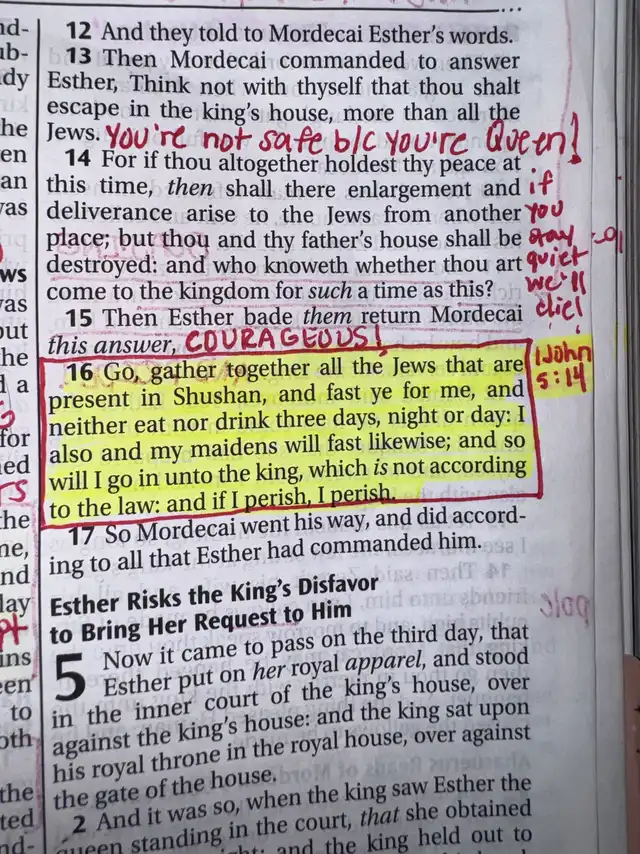 12 And they told to Mordecai Esther's words.
13 Then Mordecai commanded to answer
Esther, Think not with thyself that thou shalt
escape in the king's house, more than all the
Jews. You're not safe b/c you're Queen!
14 For if thou altogether holdest thy peace at
this time, then shall there enlargement and
deliverance arise to the Jews from another
place; but thou and thy father's house shall be
destroyed: and who knoweth whether thou art
come to the kingdom for such a time as this?
if
you
stay
quiet
we'll
die!
15 Then Esther bade them return Mordecai
this answer, COURAGEOUS!
16 Go, gather together all the Jews that are
present in Shushan, and fast ye for me, and
neither eat nor drink three days, night or day: I
also and my maidens will fast likewise; and so
will I go in unto the king, which is not according
to the law: and if I perish, I perish.
1 John
5:14
17 So Mordecai went his way, and did accord-
ing to all that Esther had commanded him.
Esther Risks the King's Disfavor
to Bring Her Request to Him
5 Now it came to pass on the third day, that
Esther put on her royal apparel, and stood
in the inner court of the king's house, over
against the king's house: and the king sat upon
his royal throne in the royal house, over against
the gate of the house.
2 And it was so, when the king saw Esther the
queen standing in the court, that she obtained
and the king held out to